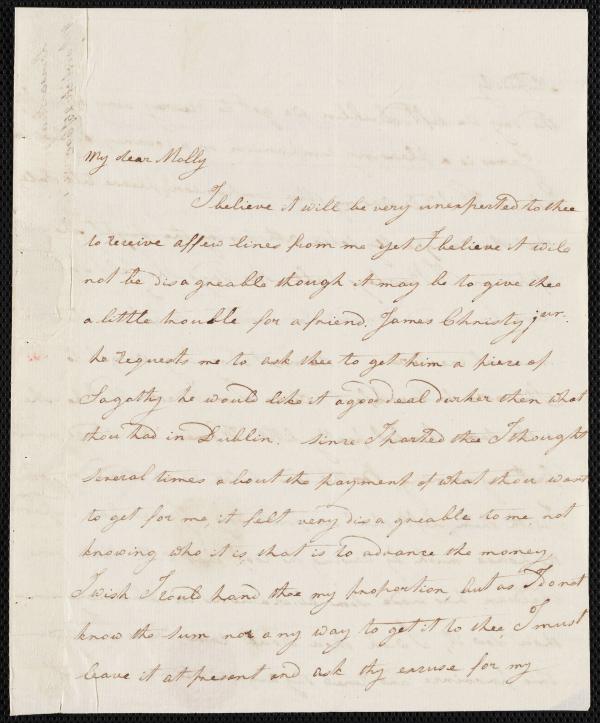 My dear Molly
I believe it will be very unexpected to thee
to receive affew lines from me yet I believe it will
not be disagreable though it may be to give thee
a little trouble for a friend. James Christy junr.
he requests me to ask thee to get him a piece of
Sagathy he would like it a good deal darker then what
thou had in Dublin. since I parted thee I thought
several times about the payment of what thou was
to get for me, it felt very disagreable to me not
knowing who it is that is to advance the money
I wish I could hand thee my proportion but as I do not
know the sum nor any way to get it to thee I must
leave it at present and ask thy excuse for my